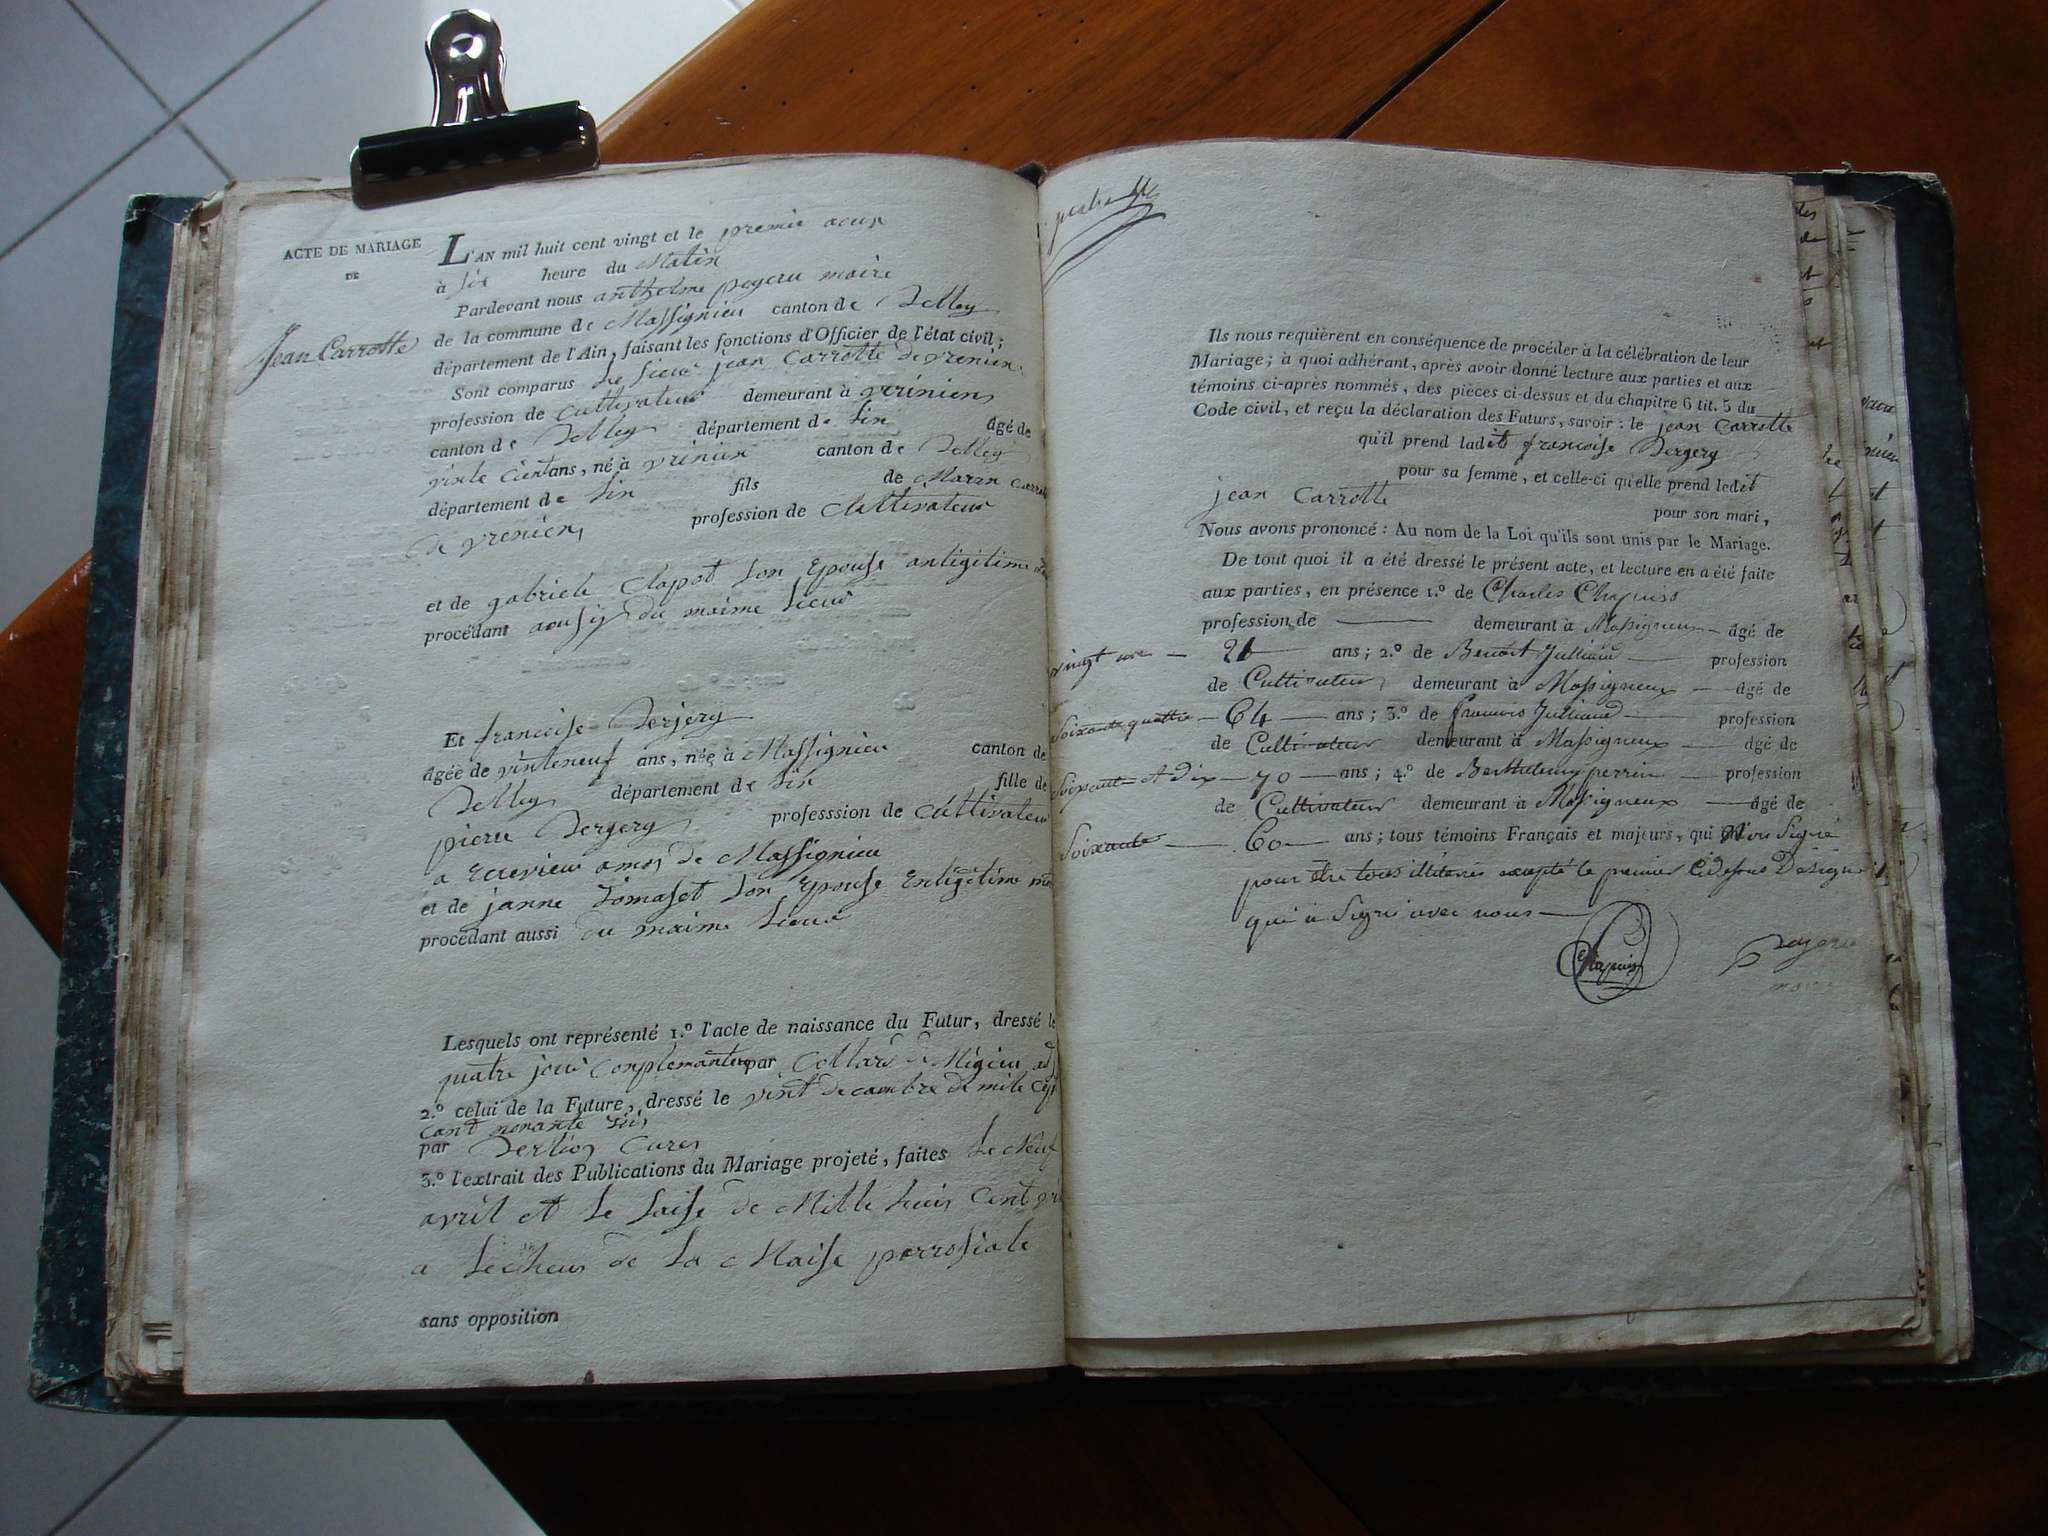 ACTE DE MARIAGE
DE
Jean Carrotte
L'AN mil huit cent vingt et le premie aous
à six heure du Matin
Pardevant nous anthelme peyeru maire
de la commune de Massignieu canton de Belley
département de l'Ain, faisant les fonctions d'Officier de l'état civil;
Sont comparus Le sieur jean Carrotte de vrenien
profession de Cultivateur demeurant à vriniens
canton de Belley département de Lin âgé de
vinte cient ans, né à vrinien canton de Belley
département de Lin fils de Marin Carrot
de vrenien, profession de Cultivateur
et de gabriele Clapot son Epouse anligitime
procédant aousy du maime Lieux
Et francoise Berjery
âgée de vinteneuf ans, née à Massignieu canton de
Belley département de Lin fille de
pierre Bergery professsion de cultivateur
a Ecrevieu de Massignieu
et de janne Tomaset son Epouse Enligétime
procédant aussi du maime Lieux
Lesquels ont représenté 1.º l'acte de naissance du Futur, dressé le
quatre jour Complemantere par Collard de Mégieu
2.º celui de la Future, dressé le vint decambre de mile
cant nonante
par Curer
3.º l'extrait des Publications du Mariage projeté, faites Le Neuf
avril et le saise de Mille huis Cent
a de La Maise parrosiale
sans opposition
Ils nous requièrent en conséquence de procéder à la célébration de leur
Mariage; à quoi adhérant, après avoir donné lecture aux parties et aux
témoins ci-après nommés, des pièces ci-dessus et du chapitre 6 tit. 5 du
Code civil, et reçu la déclaration des Futurs, savoir: le jean Carrotte
qu'il prend ladite francoise Bergery
pour sa femme, et celle-ci qu'elle prend ledit
jean Carrotte pour son mari,
Nous avons prononcé: Au nom de la Loi qu'ils sont unis par le Mariage.
De tout quoi il a été dressé le présent acte, et lecture en a été faite
aux parties, en présence 1.º de Charles Chapuiss
profession de — demeurant à Massigneux — âgé de
vingt une — 21 — ans; 2.º de Benoît Julliand — profession
de Cultivateur demeurant à Massigneux — âgé de
Soixante quattre — 64 — ans; 3.º de francois Julliand — profession
de Cultivateur demeurant à Massigneux — âgé de
Soixante et dix — 70 — ans; 4.º de Berthelemy perrin — profession
de Cultivateur demeurant à Massigneux — âgé de
Soixante — 60 — ans; tous témoins Français et majeurs, qui Signé
pour être tous illiterés excepté le premier Cidessus Designé
qui a Signé avec nous —
Chapuis
Peyeru
maire